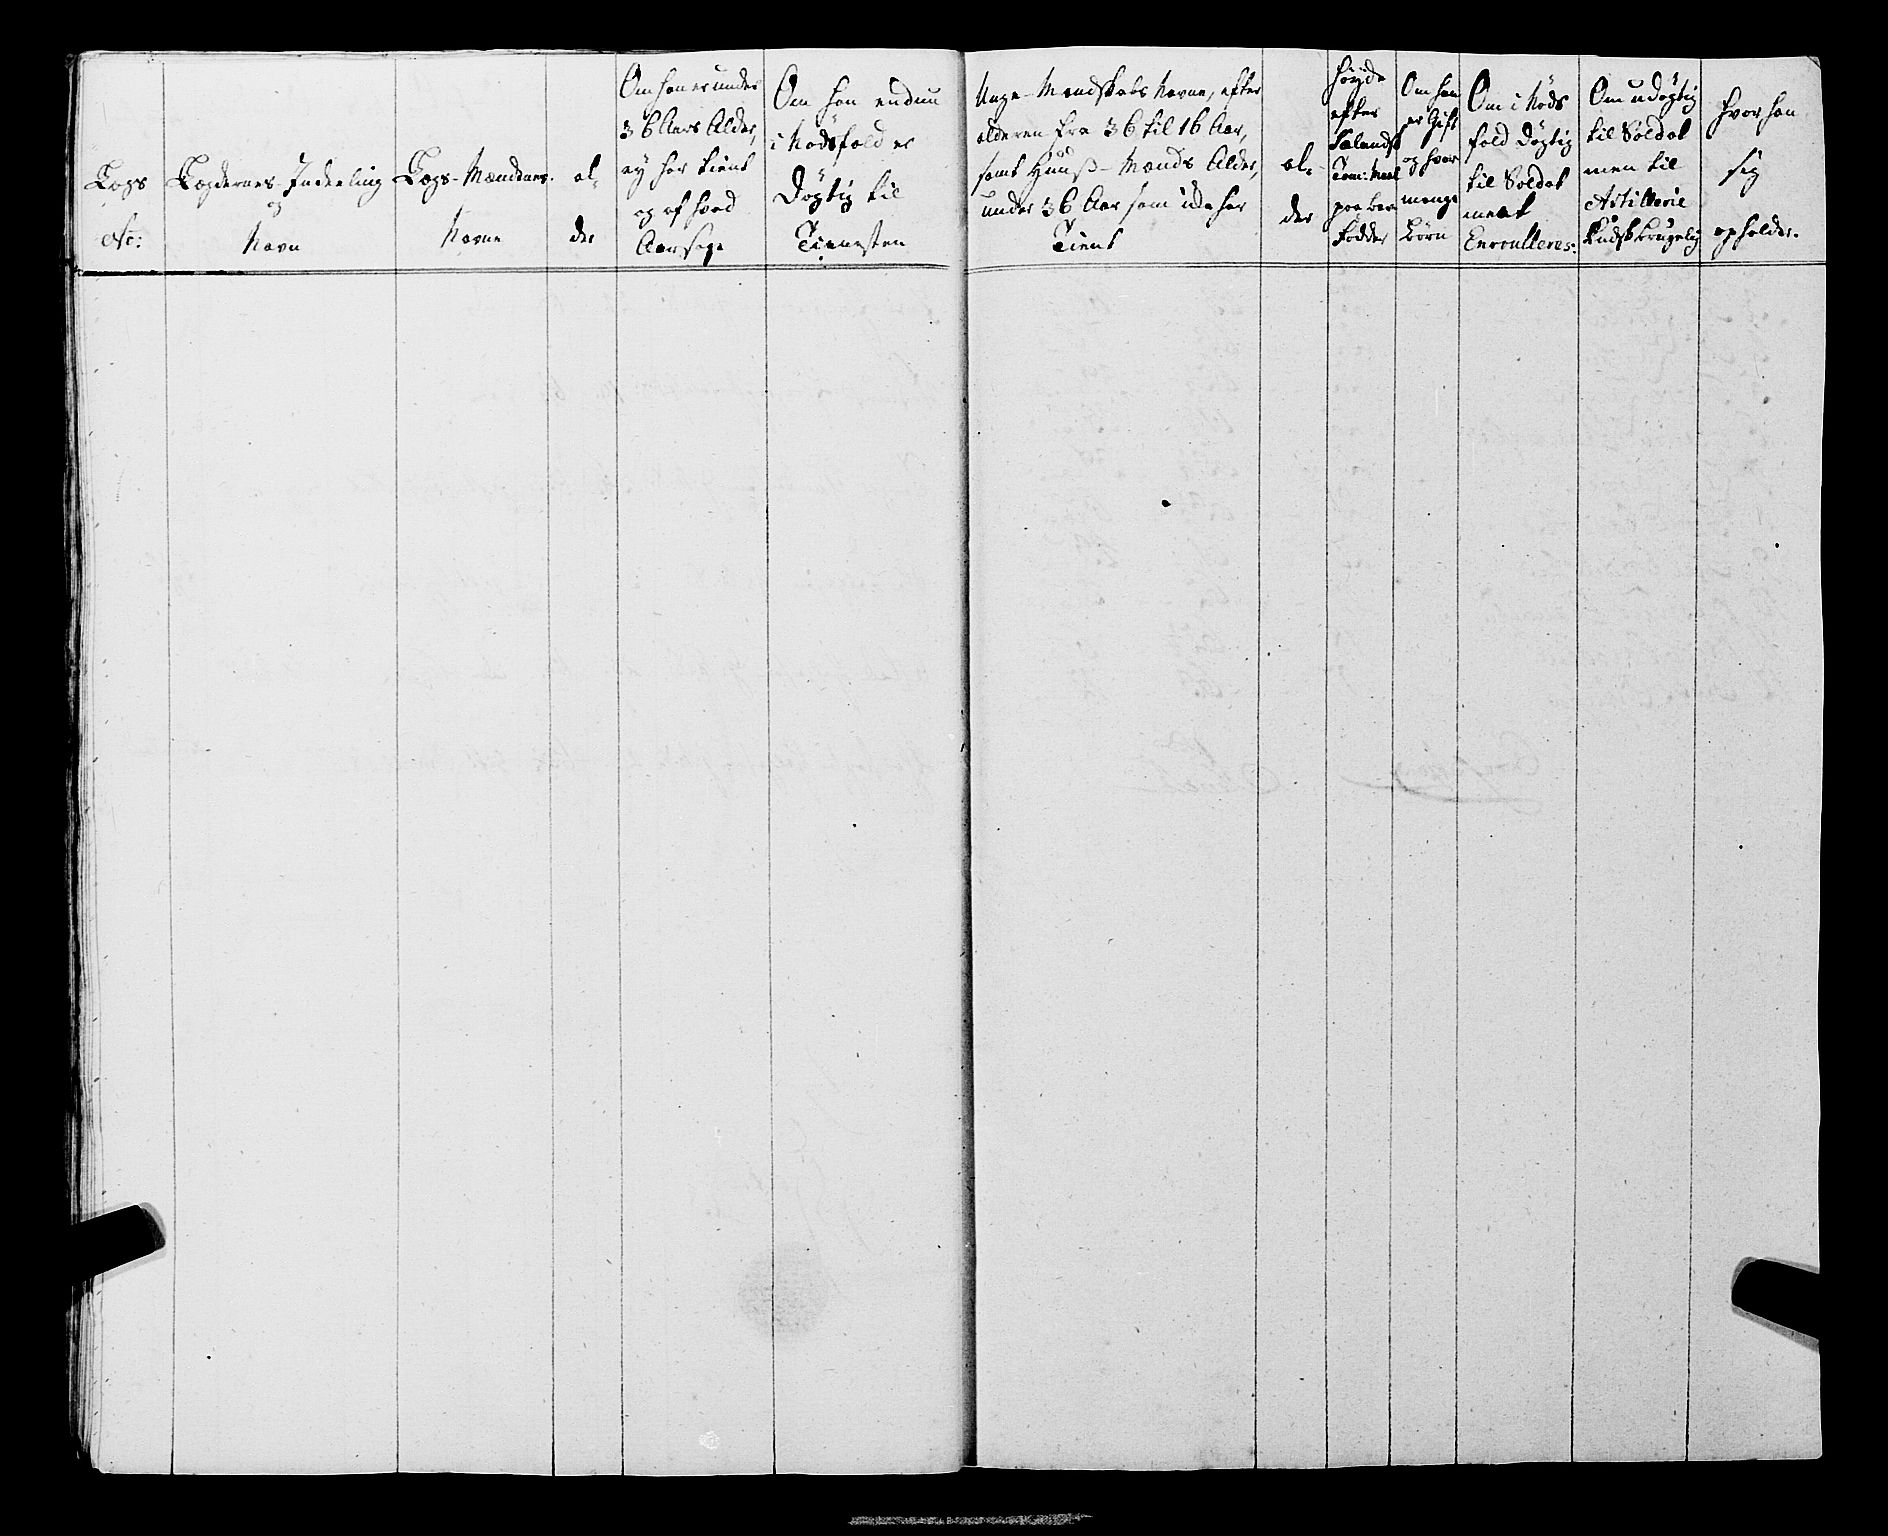 Lægs
No:
Lægdernes Inddeeling
og
Navn
Lægs-Mændenes
Navne
al-
der
Om han er under
36 Aars Alder,
ey har tient
og af hvad
Aarsage
Om han enduu
i Nødsfald er
Døgtig til
Tienesten
Unge-Mandskabs Navne, efter
alderen fra 36 til 16 Aar,
samt Huus-Mænds Alder,
under 36 Aar som icke har
Tient
al-
der
Høyde
efter
Sælandsk
Tom: Maal
paa bar
Fødder
Om han
er Gift
og hvor
mange
Børn
Om i Nøds
fald Døgtig
til Soldat
Enroulleres:
Om udøgtig
til Soldat
men til
Artillerie
Kudsk brugelig
hvor han
sig
opholder.